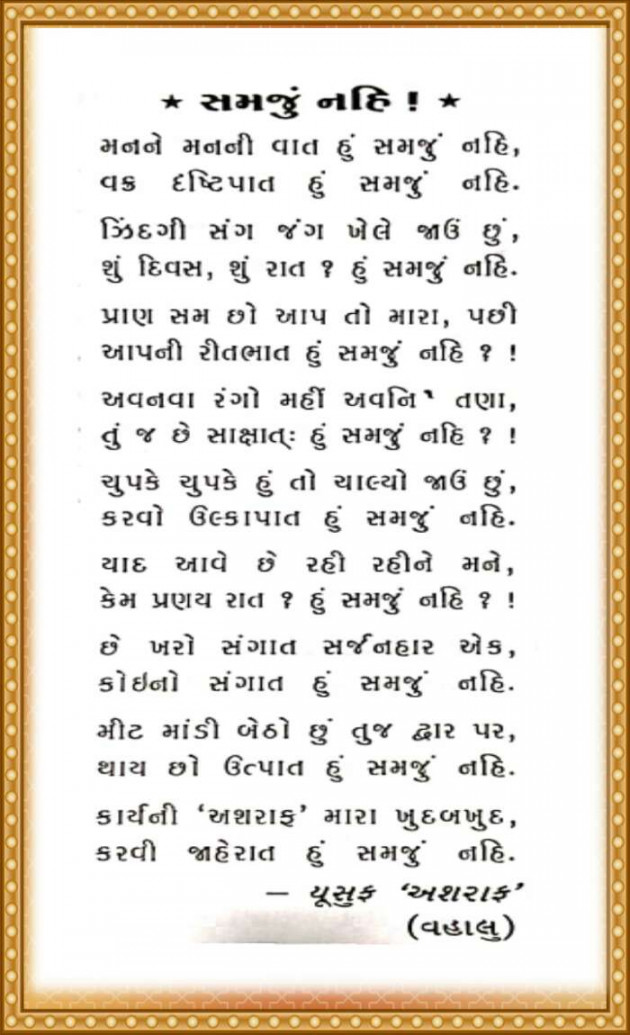 ★ સમજું નહિ ! ★
મનને મનની વાત હું સમજું નહિ,
વક્ર દૃષ્ટિપાત હું સમજું નહિ.
ઝિંદગી સંગ જંગ ખેલે જાઉં છું,
શું દિવસ, શું રાત ? હું સમજું નહિ.
પ્રાણ સમ છો આપ તો મારા, પછી
આપની રીતભાત હું સમજું નહિ ? !
અવનવા રંગો મહીં અવનિ` તણા,
તું જ છે સાક્ષાત્ઃ હું સમજું નહિ ? !
ચુપકે ચુપકે હું તો ચાલ્યો જાઉં છું,
કરવો ઉલ્કાપાત હું સમજું નહિ.
યાદ આવે છે રહી રહીને મને,
કેમ પ્રણય રાત ? હું સમજું નહિ ? !
છે ખરો સંગાત સર્જનહાર એક,
કોઇનો સંગાત હું સમજું નહિ.
મીટ માંડી બેઠો છું તુજ દ્વાર પર,
થાય છો ઉત્પાત હું સમજું નહિ.
કાર્યની ‘અશરાફ’ મારા ખુદબખુદ,
કરવી જાહેરાત હું સમજું નહિ.
– યૂસુફ ‘અશરાફ’
(વહાલુ)